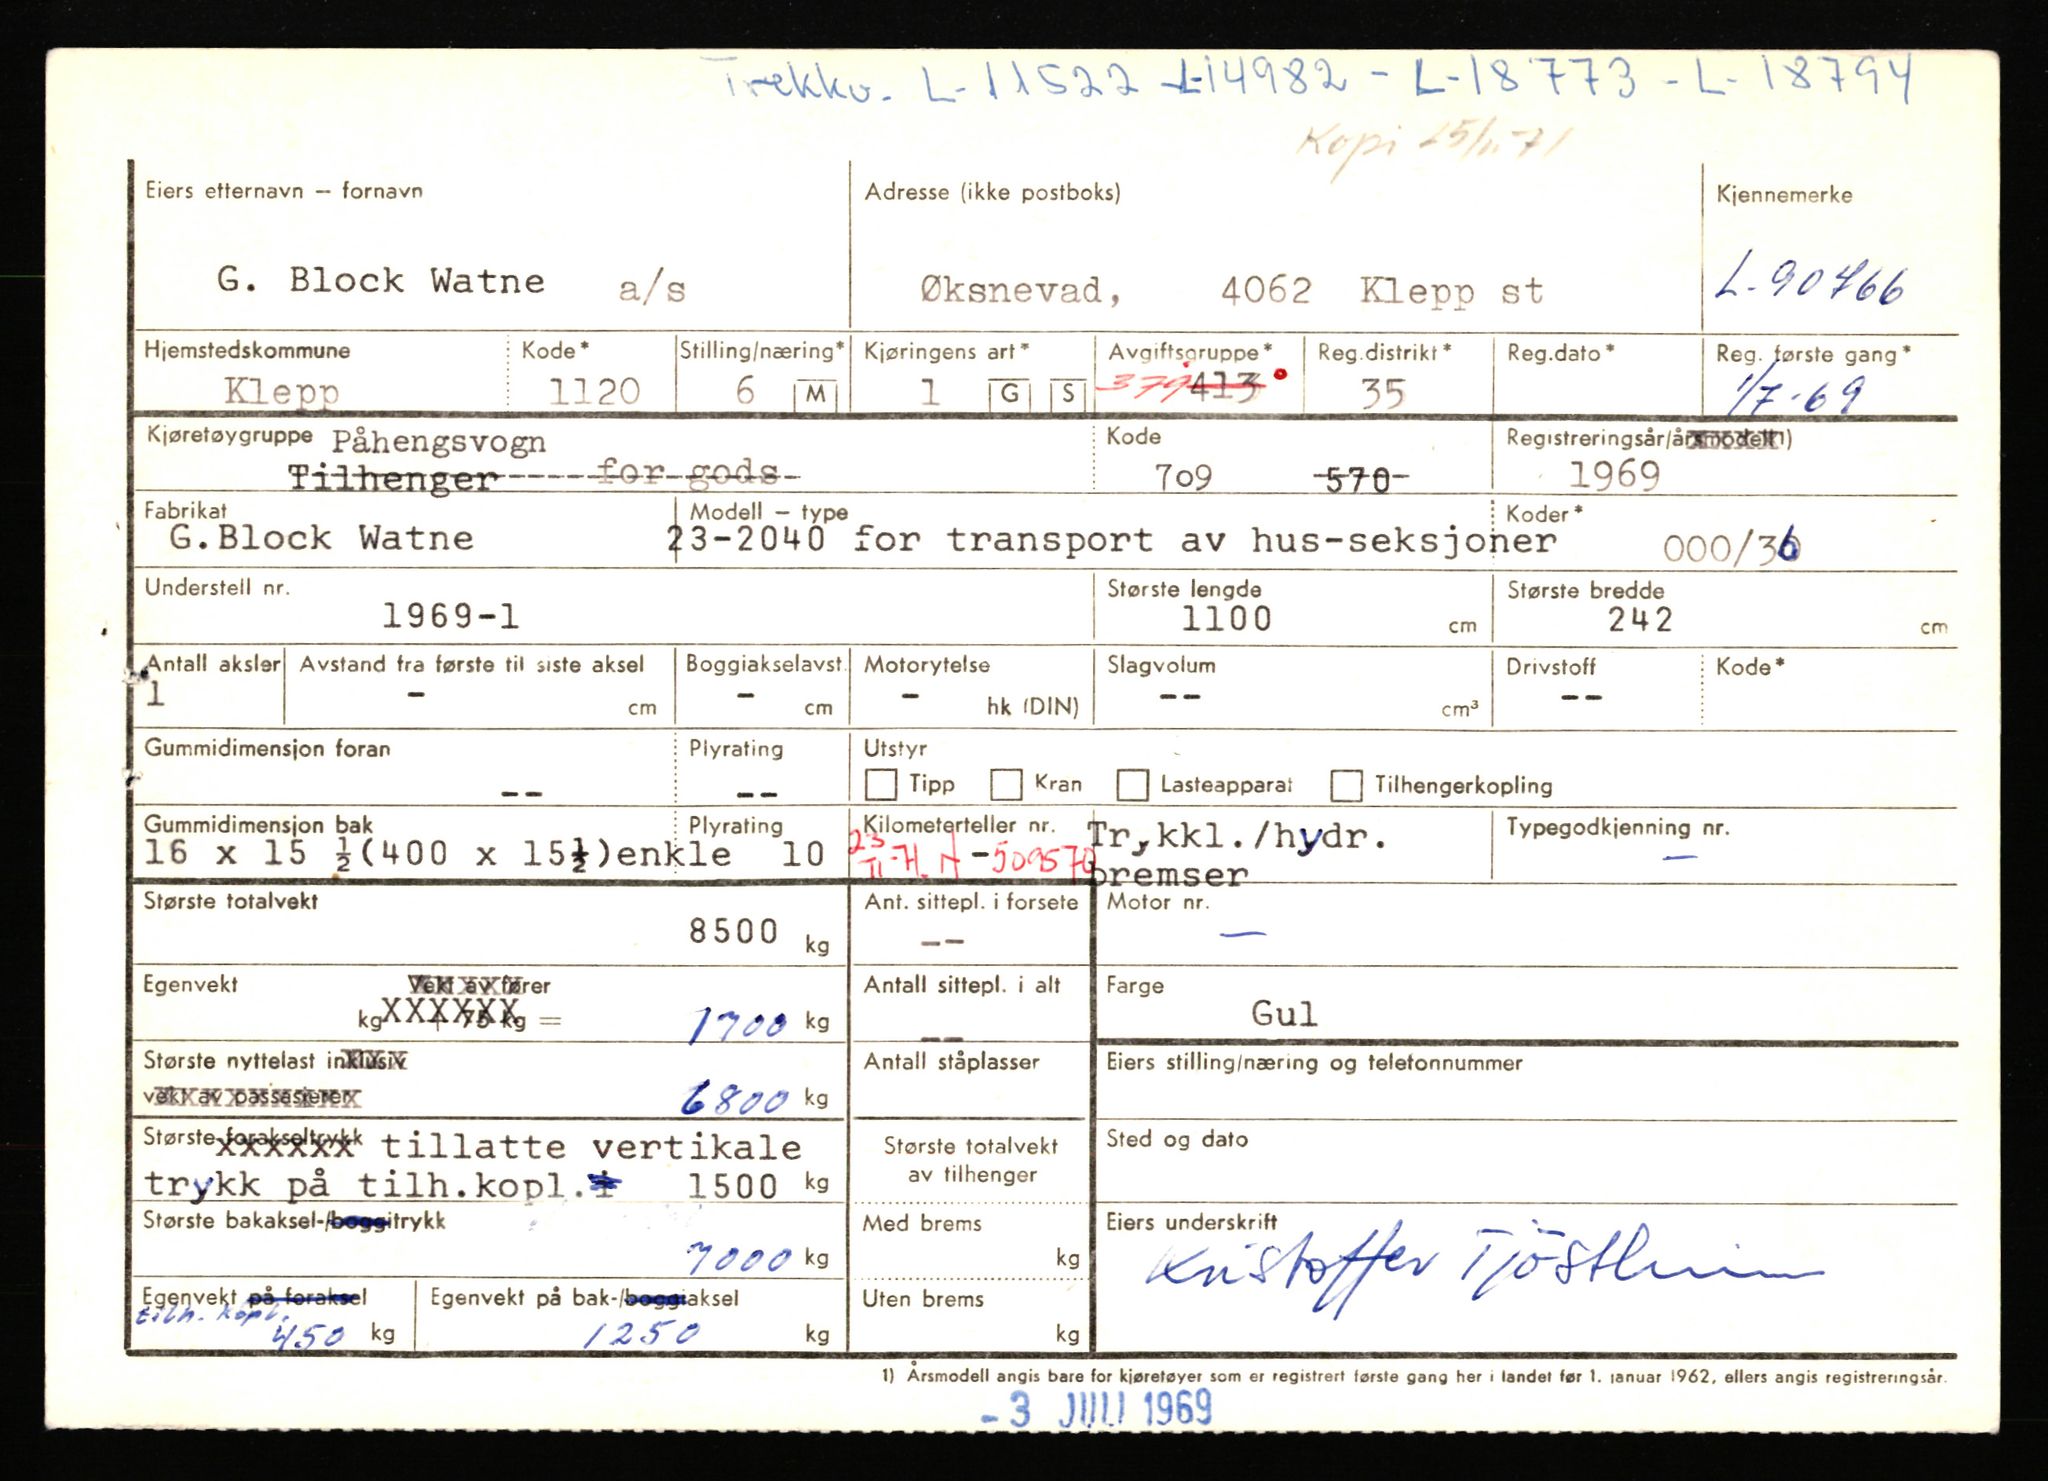 Trekkv. L-11522 - L-14982 - L-18773 - L-18794
Kopi 25/11-71
Eiers etternavn – fornavn
G. Block Watne a/s
Adresse (ikke postboks)
Øksnevad, 4062 Klepp st
Kjennemerke
L-90766
Hjemstedskommune
Klepp
Kode*
1120
Stilling/næring*
6 M
Kjøringens art*
1 G S
Avgiftsgruppe*
379 413
Reg.distrikt*
35
Reg.dato*
Reg. første gang*
1/7-69
Kjøretøygruppe Påhengsvogn
Tilhenger for gods
Kode
709 570
Registreringsår/årsmodell 1)
1969
Fabrikat
G.Block Watne
Modell – type
23-2040 for transport av hus-seksjoner
Koder*
000/36
Understell nr.
1969-1
Største lengde
1100 cm
Største bredde
242 cm
Antall aksler
1
Avstand fra første til siste aksel
- cm
Boggiakselavst.
- cm
Motorytelse
- hk (DIN)
Slagvolum
-- cm³
Drivstoff
--
Kode*
Gummidimensjon foran
--
Plyrating
--
Utstyr
Tipp Kran Lasteapparat Tilhengerkopling
Gummidimensjon bak
16 x 15 ½(400 x 15½)enkle
Plyrating
10
Kilometerteller nr.
23/11-71. N -509570
Trykkl./hydr.
bremser
Typegodkjenning nr.
-
Største totalvekt
8500 kg
Ant. sittepl. i forsete
--
Motor nr.
-
Egenvekt Vekt av fører
kg XXXXXX + 75 kg = 1700 kg
Antall sittepl. i alt
--
Farge
Gul
Største nyttelast inklusiv
vekt av passasjerer 6800 kg
Antall ståplasser
Eiers stilling/næring og telefonnummer
Største forakseltrykk tillatte vertikale
trykk på tilh.kopl. 1500 kg
Største totalvekt
av tilhenger
Sted og dato
Største bakaksel-/boggitrykk
7000 kg
Med brems
kg
Eiers underskrift
Kristoffer Tjøstheim
Egenvekt på foraksel
tilh. kopl.
450 kg
Egenvekt på bak-/boggiaksel
1250 kg
Uten brems
kg
1) Årsmodell angis bare for kjøretøyer som er registrert første gang her i landet før 1. januar 1962, ellers angis registreringsår.
- 3 JULI 1969